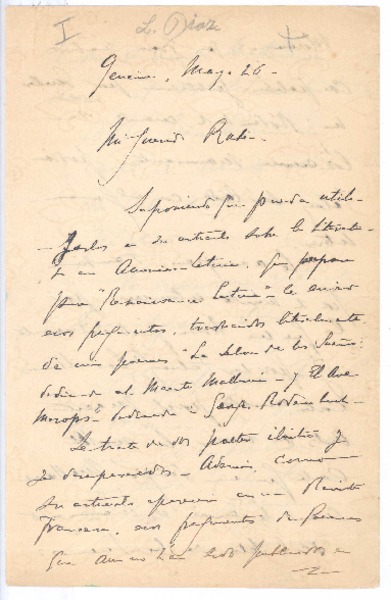 I L. Díaz
Genève, Mayo 26 -
Mi querido Rubén -
Suponiendo que puedan utili-
zarlos en su artículo sobre la Literatu-
ra en America-latina, que prepara
para "Renaissance Latine" - le envio
esos fragmentos, traducidos literalmente
de mis poemas "La Selva de los Sueños"
dedicado al Maestro Mallarmé - y El Ave
dedicado a George Rodenbach -
Se trata de dos poetas ilustres y
ya desaparecidos - Además, como
su artículo aparecerá en una Revista
Francesa, esos fragmentos de Poemas
que aun no han sido publicados en
- 2 -